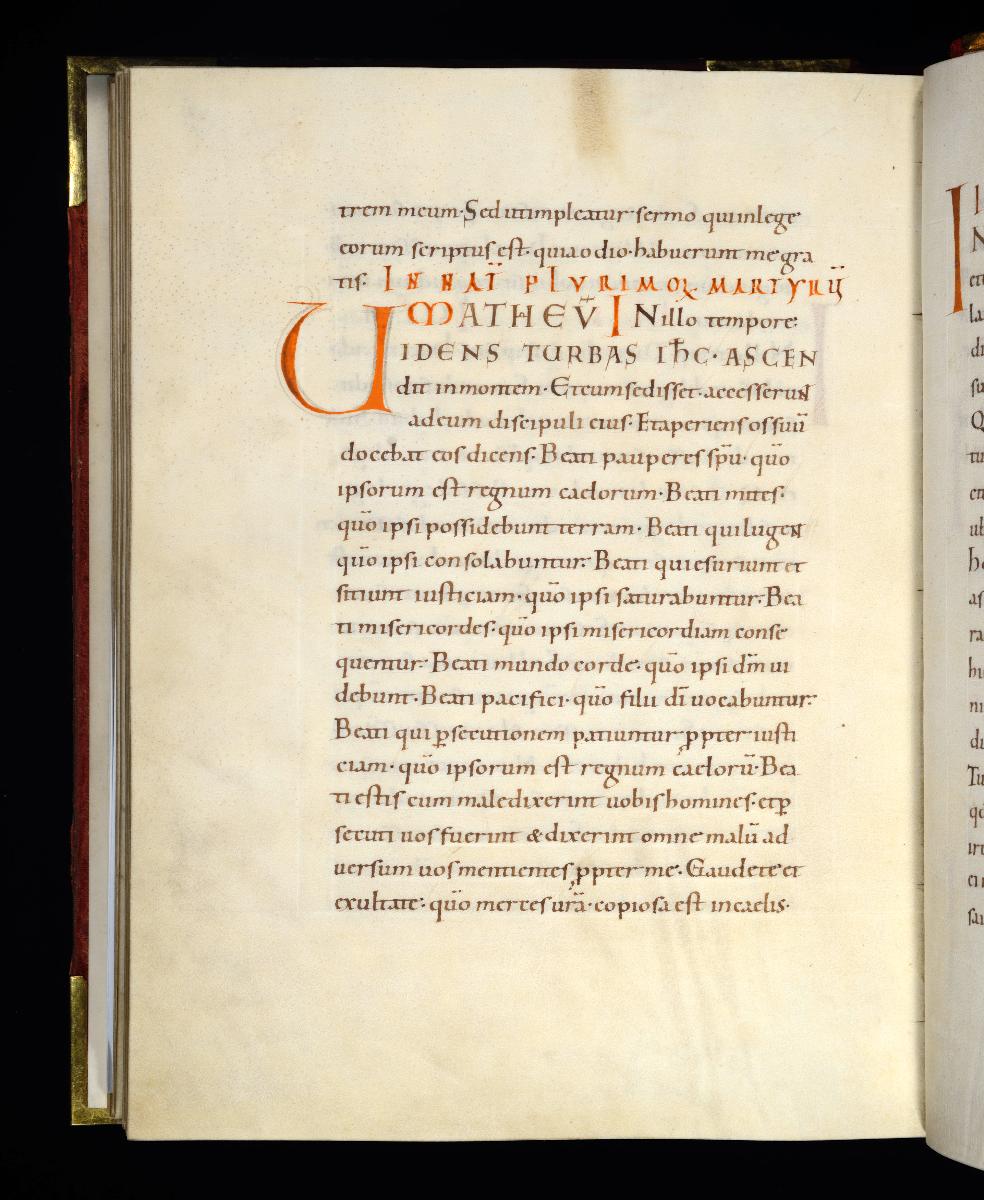 trem meum. Sed ut impleatur sermo qui in lege
eorum scriptus est. quia odio habuerunt me gra
tis. IN NAT̄ PLURIMOꝜ MARTYRŪ
MATHEŪ IN illo tempore.
UIDENS TURBAS IHC̄. ASCEN
dit in montem. Et cum sedisset. accesserunt
ad eum discipuli eius. Et aperiens os suū
docebat eos dicens. Beati pauperes spū. quō
ipsorum est regnum caelorum. Beati mites.
quō ipsi possidebunt terram. Beati qui lugent
quō ipsi consolabuntur. Beati qui esuriunt et
sitiunt iusticiam. quō ipsi saturabuntur. Bea
ti misericordes. quō ipsi misericordiam conse
quentur. Beati mundo corde. quō ipsi dm̄ ui
debunt. Beati pacifici. quō filii dī uocabuntur.
Beati qui ꝑsecutionem patiuntur ꝓpter iusti
ciam. quō ipsorum est regnum caelorū. Bea
ti estis cum maledixerint uobis homines. et ꝑ
secuti uos fuerint & dixerint omne malū ad
uersum uos mentientes ꝓpter me. Gaudete et
exultate. quō merces urā copiosa est in caelis.